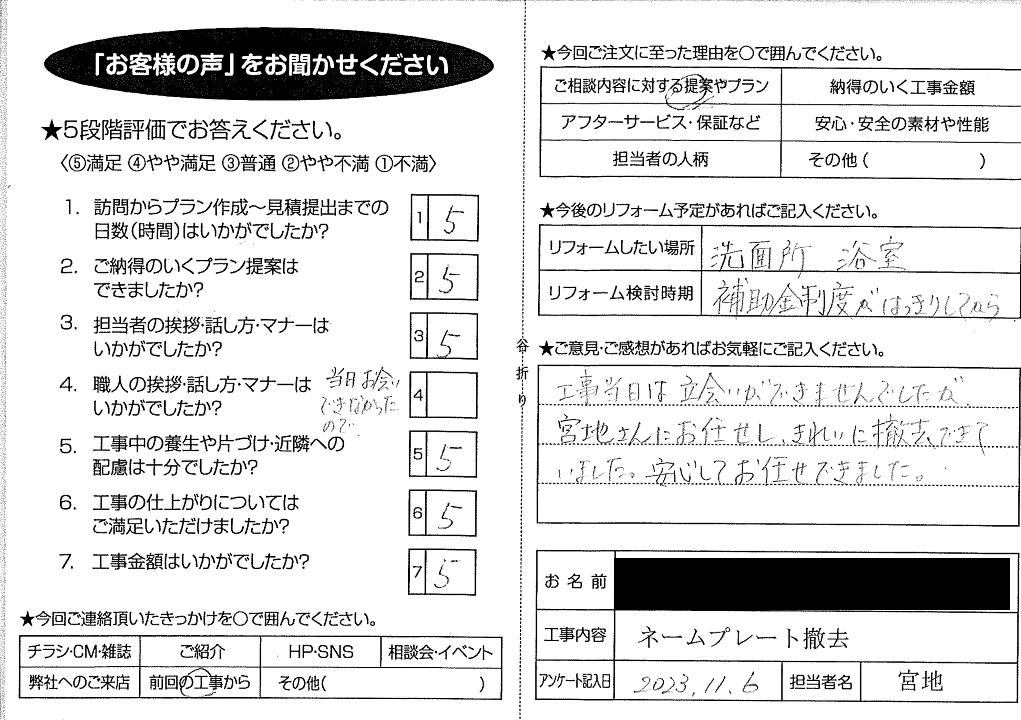 「お客様の声」をお聞かせください
★5段階評価でお答えください。
〈⑤満足 ④やや満足 ③普通 ②やや不満 ①不満〉
1. 訪問からプラン作成～見積提出までの
日数(時間)はいかがでしたか?
1 5
2. ご納得のいくプラン提案は
できましたか?
2 5
3. 担当者の挨拶・話し方・マナーは
いかがでしたか?
3 5
4. 職人の挨拶・話し方・マナーは
いかがでしたか?
当日お会い
できなかった
ので
4
5. 工事中の養生や片づけ・近隣への
配慮は十分でしたか?
5 5
6. 工事の仕上がりについては
ご満足いただけましたか?
6 5
7. 工事金額はいかがでしたか?
7 5
★今回ご連絡頂いたきっかけを〇で囲んでください。
チラシ・CM・雑誌 ご紹介 HP・SNS 相談会・イベント
弊社へのご来店 前回の工事から その他( )
谷折り
★今回ご注文に至った理由を〇で囲んでください。
ご相談内容に対する提案やプラン 納得のいく工事金額
アフターサービス・保証など 安心・安全の素材や性能
担当者の人柄 その他( )
★今後のリフォーム予定があればご記入ください。
リフォームしたい場所 洗面所 浴室
リフォーム検討時期 補助金制度がはっきりしてから
★ご意見・ご感想があればお気軽にご記入ください。
工事当日は立会いができませんでしたが、
宮地さんにお任せし、きれいに撤去できて
いました。安心してお任せできました。
お名前
工事内容 ネームプレート撤去
アンケート記入日 2023.11.6 担当者名 宮地